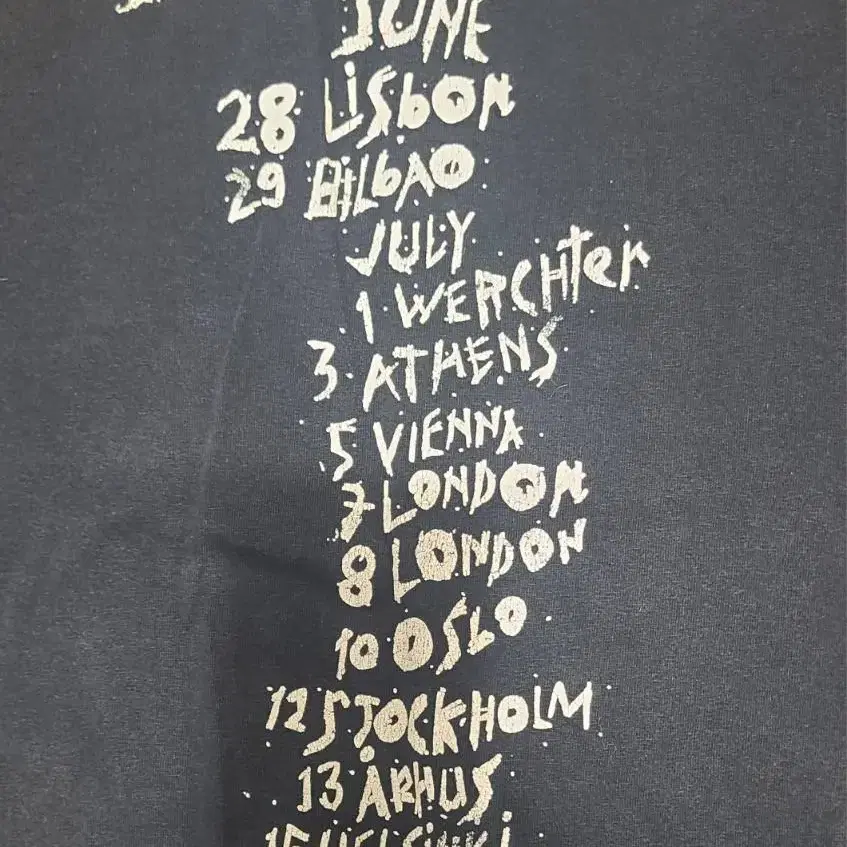 JUNE
28 LiSbON
29 BiLbAO
JULY
1 WERCHteR
3 ATHENS
5 VIENNA
7 LONDON
8 LONDON
10 OSLO
12 STOCKHOLM
13 ÅRHUS
15 HELSiNKi